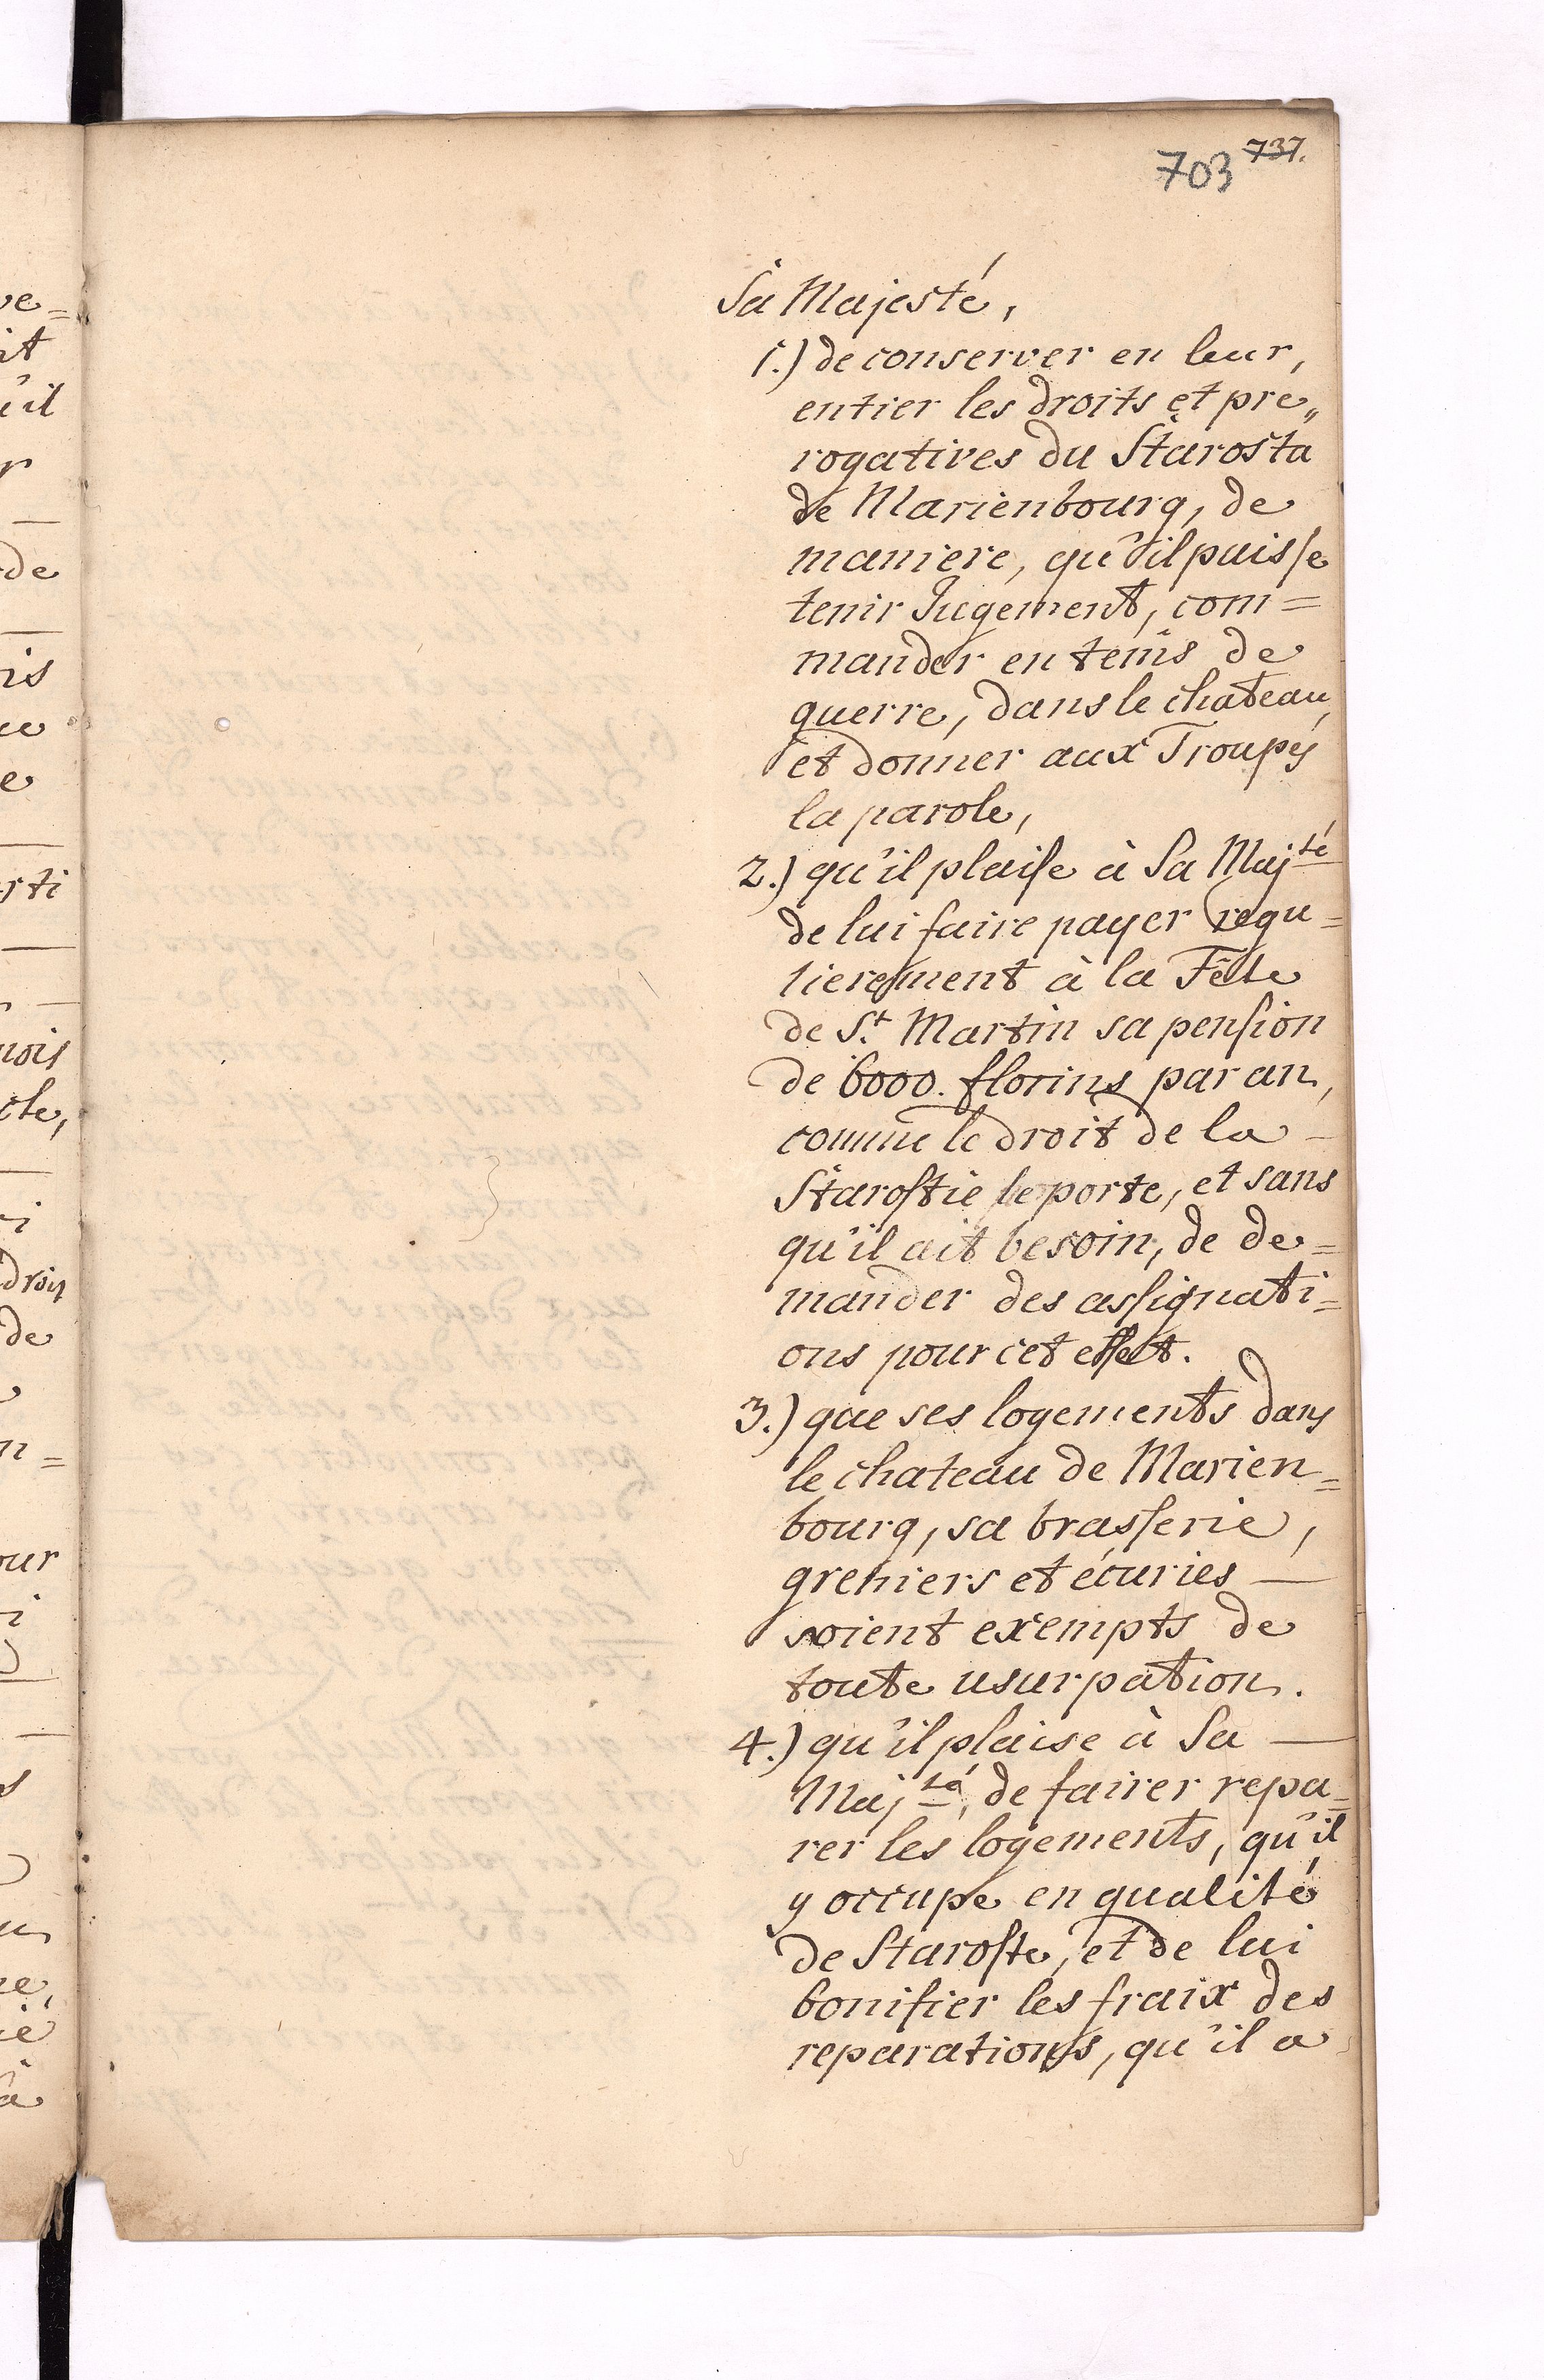 703 737.
Sa Majesté,
1.) de conserver en leur,
entier les droits et pre„
rogatives du Starosta
de Marienbourg, de
maniere, qu'il puisse
tenir Jugement, com=
mander en tems de
guerre, dans le chateau,
et donner aux Troupes
la parole,
2.) qu'il plaise à Sa Maj.té
de lui faire payer regu=
lierement à la Fête
de St. Martin sa pension
de 6000. florins par an,
comme le droit de la —
Starostie le porte, et sans
qu'il ait besoin, de de=
mander des assignati=
ons pour cet effet.
3.) que ses logements dans
le chateau de Marien=
bourg, sa brasserie,
greniers et écuries —
soient exempts de
toute usurpation.
4.) qu'il plaise à Sa —
Maj.té, de fairer repa=
rer les logements, qu'il
y occupe en qualité
de Staroste, et de lui
bonifier les fraix des
reparations, qu'il a